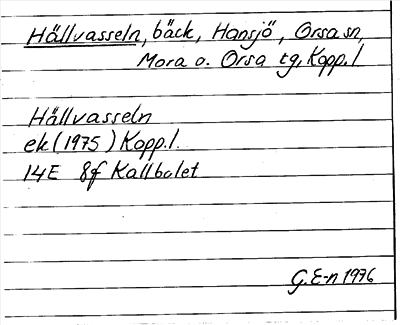 Hällvasseln, bäck, Hansjö, Orsa sn,
Mora o. Orsa tg, Kopp.l
Hällvasseln
ek (1975) Kopp.l.
14E 8f Kallbolet
G. E-n 1976